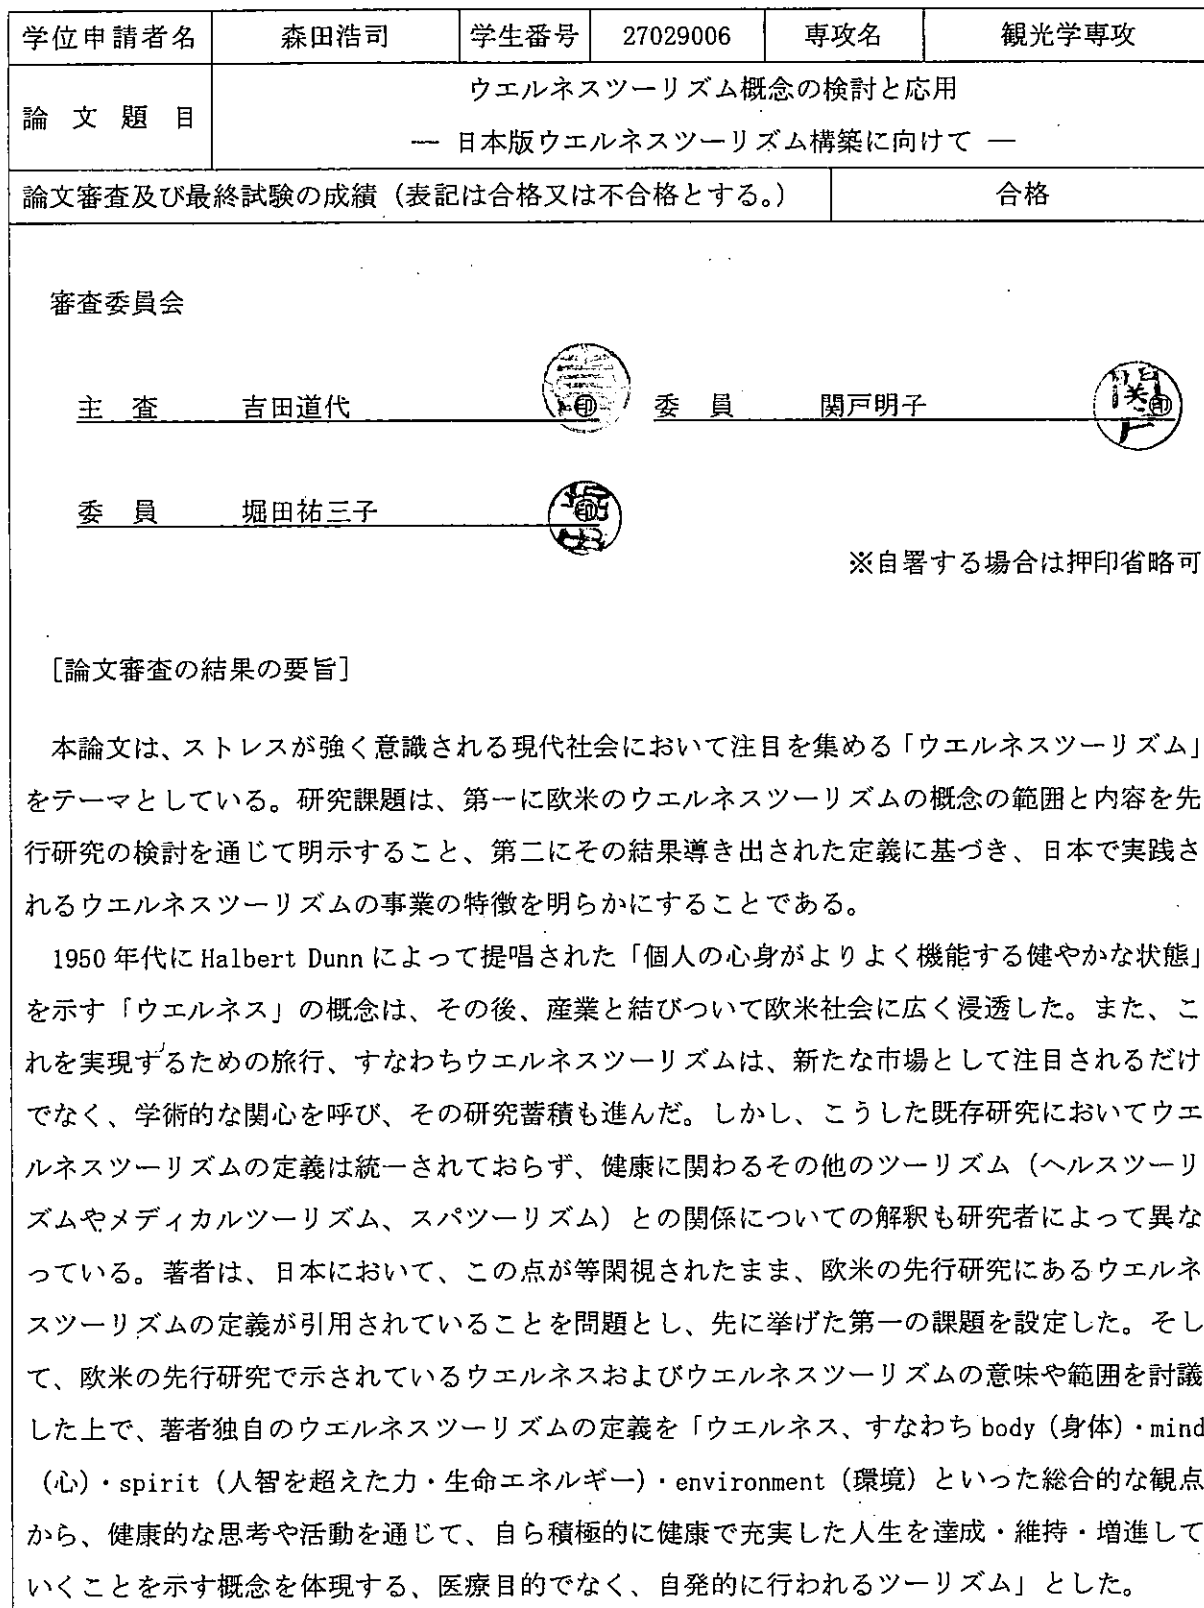 学位申請者名 森田浩司 学生番号 27029006 専攻名 観光学専攻
論文題目 ウエルネスツーリズム概念の検討と応用
― 日本版ウエルネスツーリズム構築に向けて ―
論文審査及び最終試験の成績（表記は合格又は不合格とする。） 合格
審査委員会
主 査 吉田道代 ㊞ 委 員 関戸明子 関戸 ㊞
委 員 堀田祐三子 ㊞
※自署する場合は押印省略可
[論文審査の結果の要旨]
本論文は、ストレスが強く意識される現代社会において注目を集める「ウエルネスツーリズム」
をテーマとしている。研究課題は、第一に欧米のウエルネスツーリズムの概念の範囲と内容を先
行研究の検討を通じて明示すること、第二にその結果導き出された定義に基づき、日本で実践さ
れるウエルネスツーリズムの事業の特徴を明らかにすることである。
1950 年代に Halbert Dunn によって提唱された「個人の心身がよりよく機能する健やかな状態」
を示す「ウエルネス」の概念は、その後、産業と結びついて欧米社会に広く浸透した。また、こ
れを実現するための旅行、すなわちウエルネスツーリズムは、新たな市場として注目されるだけ
でなく、学術的な関心を呼び、その研究蓄積も進んだ。しかし、こうした既存研究においてウエ
ルネスツーリズムの定義は統一されておらず、健康に関わるその他のツーリズム（ヘルスツーリ
ズムやメディカルツーリズム、スパツーリズム）との関係についての解釈も研究者によって異な
っている。著者は、日本において、この点が等閑視されたまま、欧米の先行研究にあるウエルネ
スツーリズムの定義が引用されていることを問題とし、先に挙げた第一の課題を設定した。そし
て、欧米の先行研究で示されているウエルネスおよびウエルネスツーリズムの意味や範囲を討議
した上で、著者独自のウエルネスツーリズムの定義を「ウエルネス、すなわち body（身体）・mind
（心）・spirit（人智を超えた力・生命エネルギー）・environment（環境）といった総合的な観点
から、健康的な思考や活動を通じて、自ら積極的に健康で充実した人生を達成・維持・増進して
いくことを示す概念を体現する、医療目的でなく、自発的に行われるツーリズム」とした。